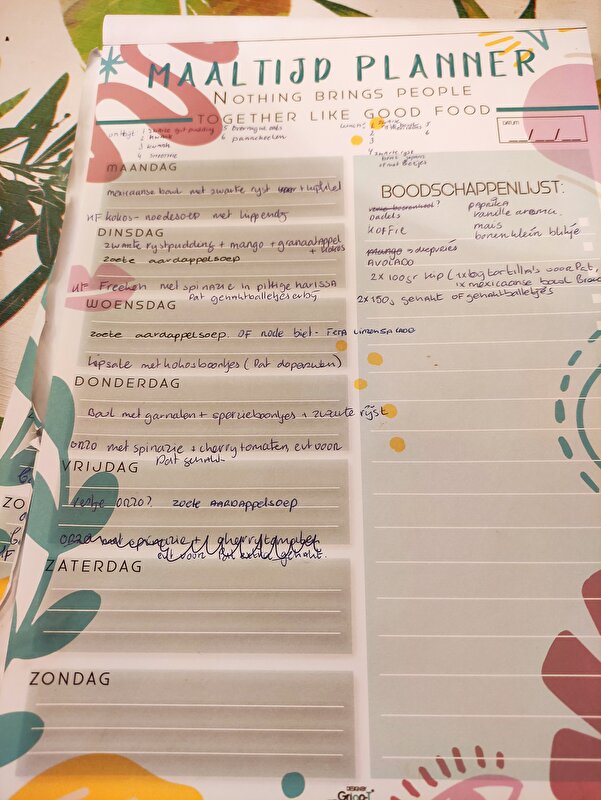 MAALTIJD PLANNER
NOTHING BRINGS PEOPLE
TOGETHER LIKE GOOD FOOD
DATUM
ontbijt 1 zwarte rijst pudding 5 overnight oats
2 kwark 6 pannekoeken
3 kwark
4 smoothie
lunch: 1 5
2 6
3
4 zwarte rijst
MAANDAG
mexicaanse bowl met zwarte rijst + kipfilet
HF kokos-noedesoep met kippendij
DINSDAG
zwarte rijstpudding + mango + granaatappel + kokos
zoete aardappelsoep
HF Freekeh met spinazie in pittige harissa
Pat gehaktballetjes erbij
WOENSDAG
zoete aardappelsoep. OF rode biet- FETA LINZENSALADE
kipsaté met kokosboontjes (Pat doperwten)
DONDERDAG
Bowl met garnalen + sperzieboontjes + zwarte rijst
orzo met spinazie + cherrytomaten, evt voor
Pat gehakt
VRIJDAG
restje orzo? zoete AARDAPPELSOEP
orzo met spinazie + cherrytomaten
evt voor Pat extra gehakt.
ZATERDAG
ZONDAG
BOODSCHAPPENLIJST:
dadels
KOFFIE
mango → diepvries
AVOCADO
paprika
vanille aroma.
mais
bonen klein blikje
2x 100gr kip (1x bij tortilla's voor Pat,
1x mexicaanse bowl
2x 150g gehakt of gehaktballetjes
DESIGNED BY